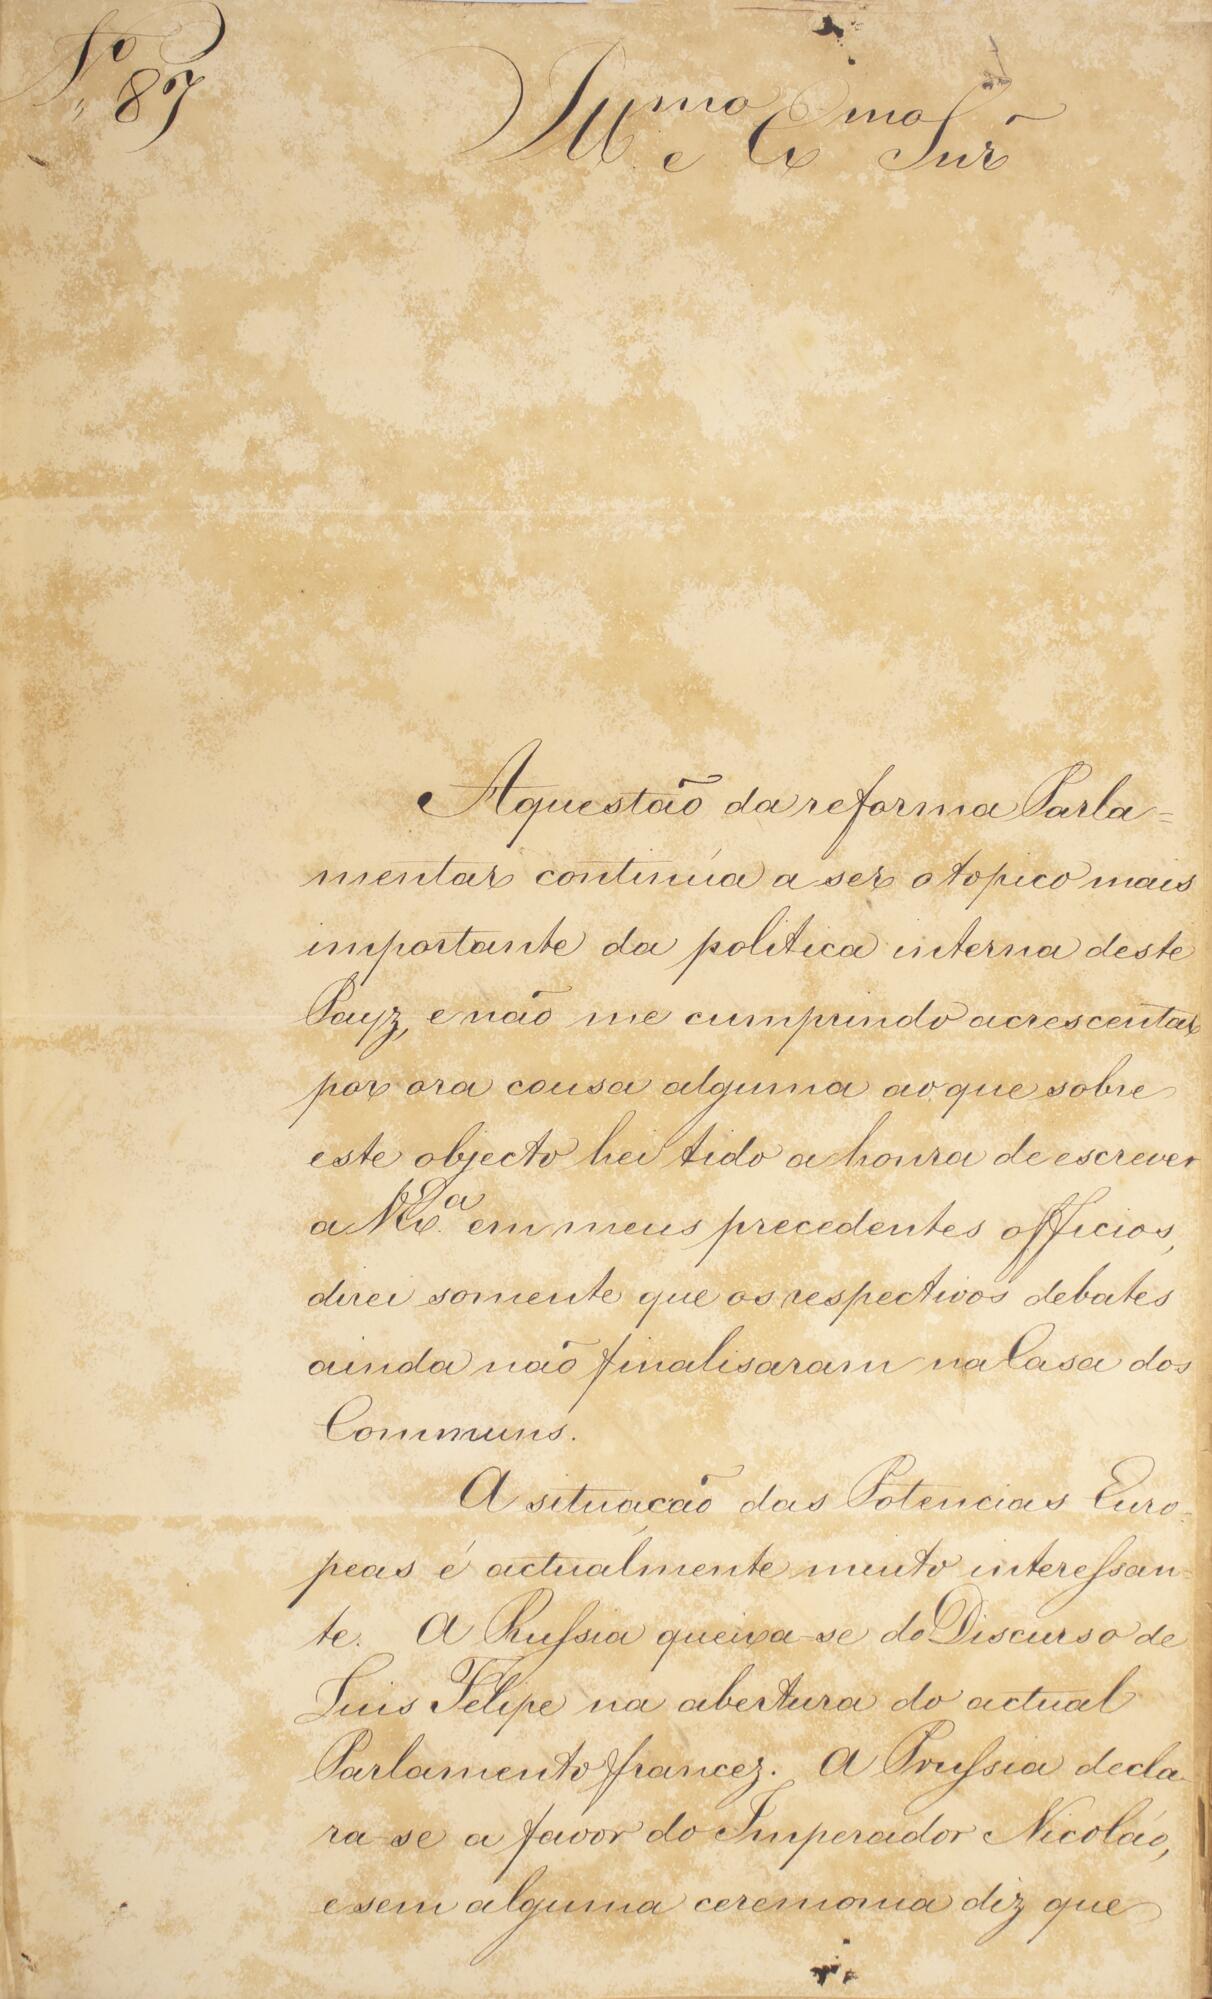 Nº 87
Illmo e Exmo Snr̃
A questaõ da reforma Parla=
mentar continúa a ser o topico mais
importante da politica interna deste
Payz, e naõ me cumprindo acrescentar
por ora cousa alguma ao que sobre
este objecto hei tido a honra de escrever
a V.Exª em meus precedentes officios,
direi somente que os respectivos debates
ainda naõ finalisaram na Casa dos
Communs.
A situaçaõ das Potencias Euro-
peas é actualmente muito interessan-
te. A Russia queixa-se do Discurso de
Luis Felipe na abertura do actual
Parlamento francez. A Prussia decla-
ra-se a favor do Imperador Nicoláo,
e sem alguma ceremonia diz que